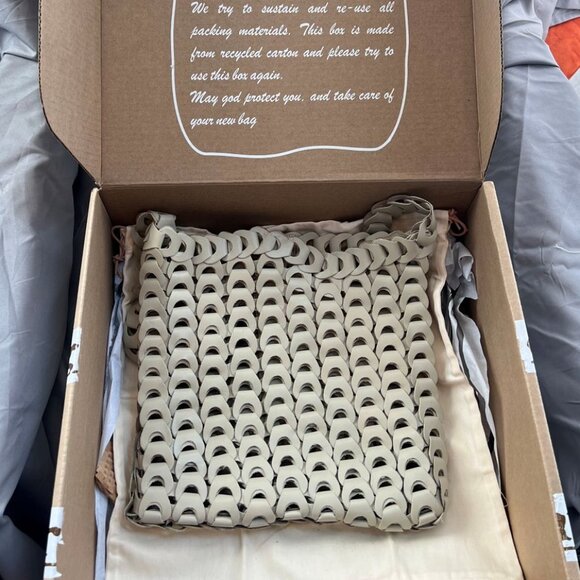 We try to sustain and re-use all
packing materials. This box is made
from recycled carton and please try to
use this box again.
May god protect you, and take care of
your new bag